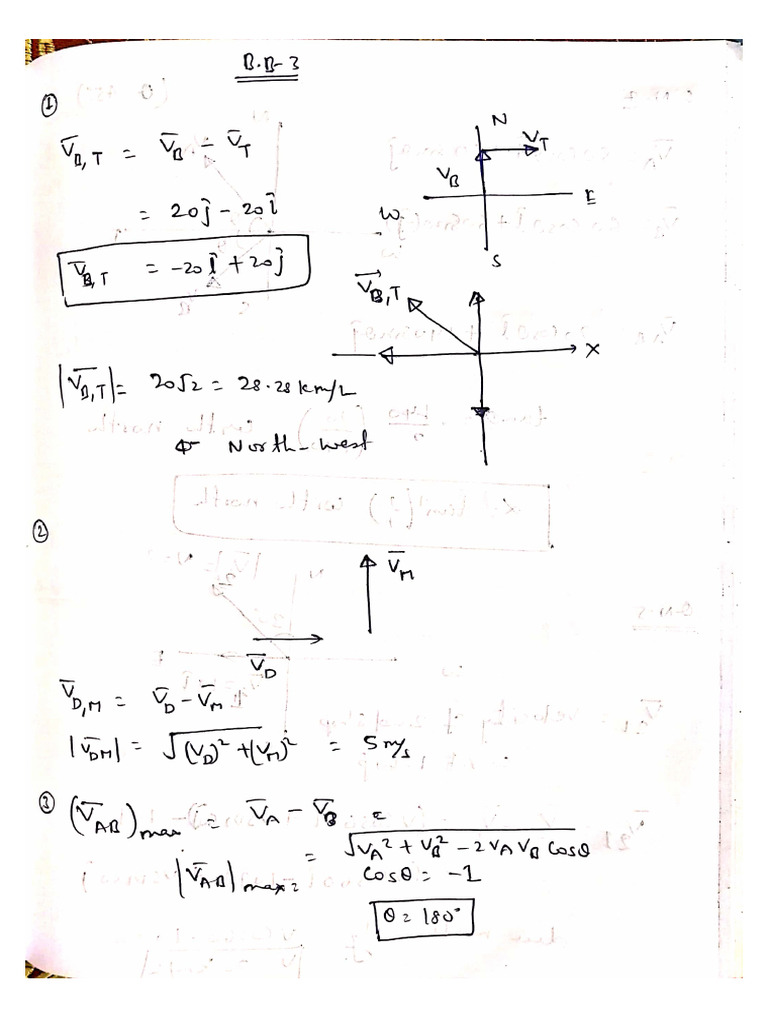 B.B-3
①
V̄B,T = V̄B - V̄T
= 20ĵ - 20î
V̄B,T = -20î + 20ĵ
N
VT
VB
E
W
S
V̄B,T
X
|V̄B,T| = 20√2 = 28.28 km/h
North-west
②
V̄M
V̄D
V̄D,M = V̄D - V̄M
|V̄DM| = √(VD)² + (VM)² = 5 m/s
③ (V̄AB)max = V̄A - V̄B =
|V̄AB|max = √VA² + VB² - 2VA VB Cosθ
Cosθ = -1
θ = 180°